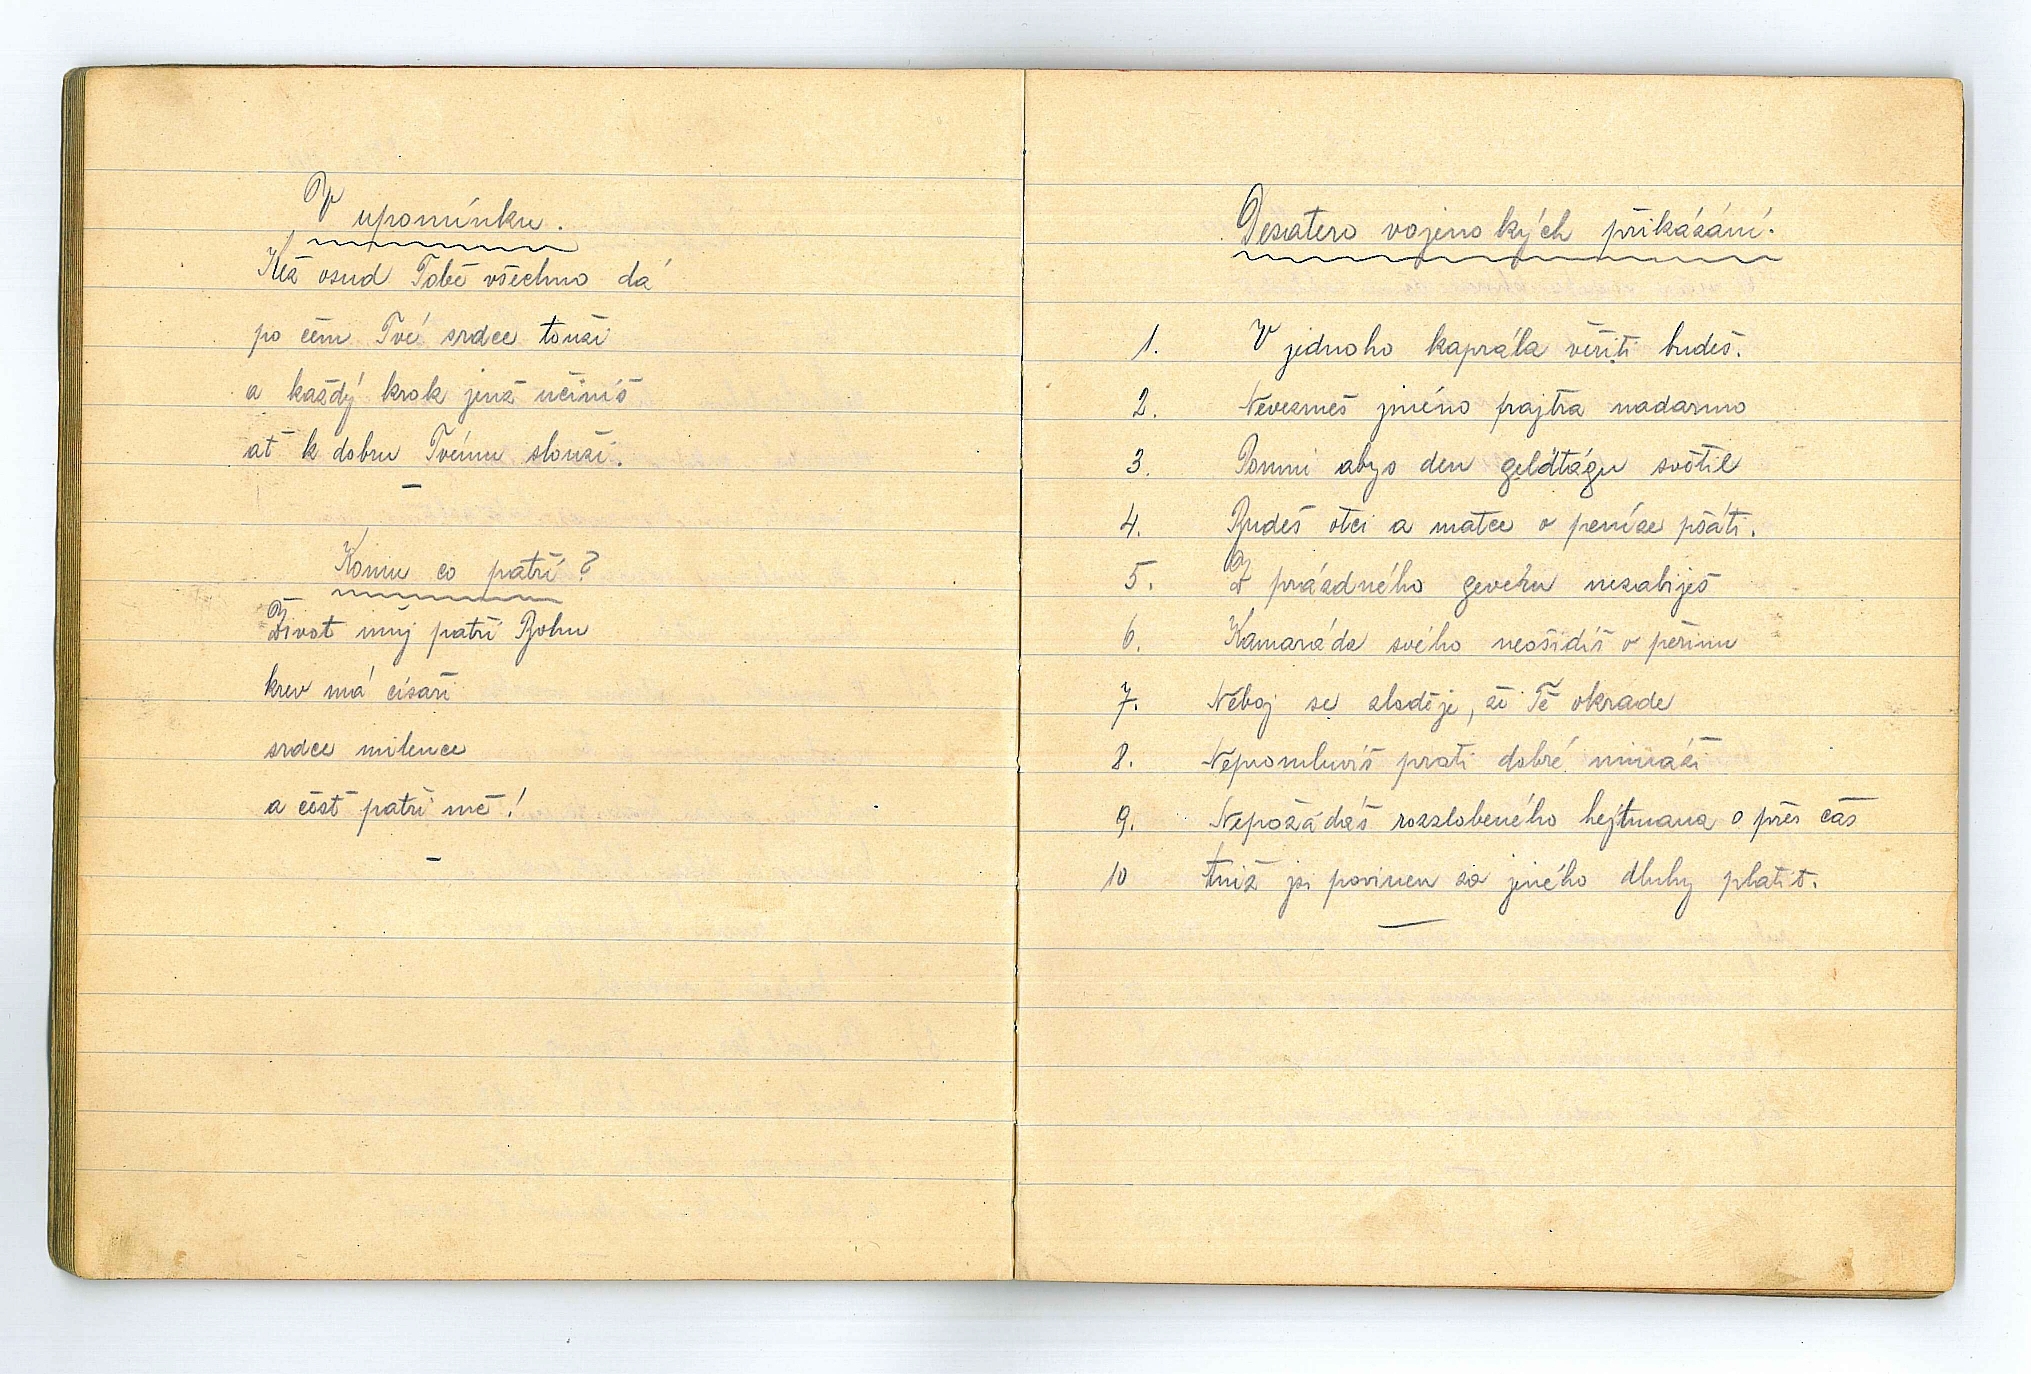 V upomínku.
Kéž osud Tobě všechno dá
po čem Tvé srdce touží
a každý krok jenž učiníš
ať k dobru Tvému slouží.
Komu co patří?
Život můj patří Bohu
krev má císaři
srdce milence
a čest patří mě!
Desatero vojenských přikázání.
1. V jednoho kaprála věřiti budeš.
2. Nevezmeš jméno frajtra nadarmo
3. Pomni abys den geldtágu světil
4. Budeš otci a matce o peníze psáti.
5. Z prázdného gevéru nezabiješ
6. Kamaráda svého neošidíš o peřinu
7. Neboj se zloděje, že Tě okrade
8. Nepromluvíš proti dobré mináži
9. Nepožádáš rozzlobeného hejtmana o přes čas
10 Aniž jsi povinen za jiného dluhy platit.